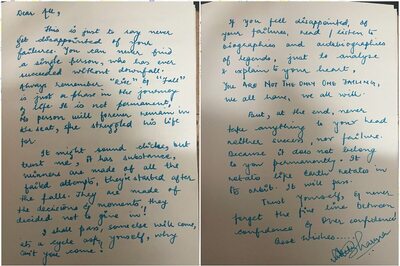 Dear All,
This is just to say never
get disappointed of your
failures. You can never find
a single person, who has ever
succeeded without downfall.
Always remember "Rise" & "Fall"
is just a phase in the journey
of life. It is not permanent,
No person will forever remain in
the seat, he struggled his life
for.
It might sound cliche, but
trust me, it has substance,
winners are made of all the
failed attempts, they started after
the falls. They are made of
the decisions & moments, they
decided not to give in!
I shall pass, someone else will come,
it's a cycle ask yourself, why
can't you come?
If you feel disappointed, of
your failures, read / listen to
biographies and autobiographies
of legends, just to analyse
& explain to your heart,
YOU ARE NOT THE ONLY ONE FAILING,
we all have, we all will.
But, at the end, never
take anything to your head
neither success nor failure.
Because it does not belong
to you permanently. It
rotates like Earth rotates in
its orbit. It will pass.
Trust Yourself, & never
forget the fine line between
confidence & Over confidence
Best wishes.....